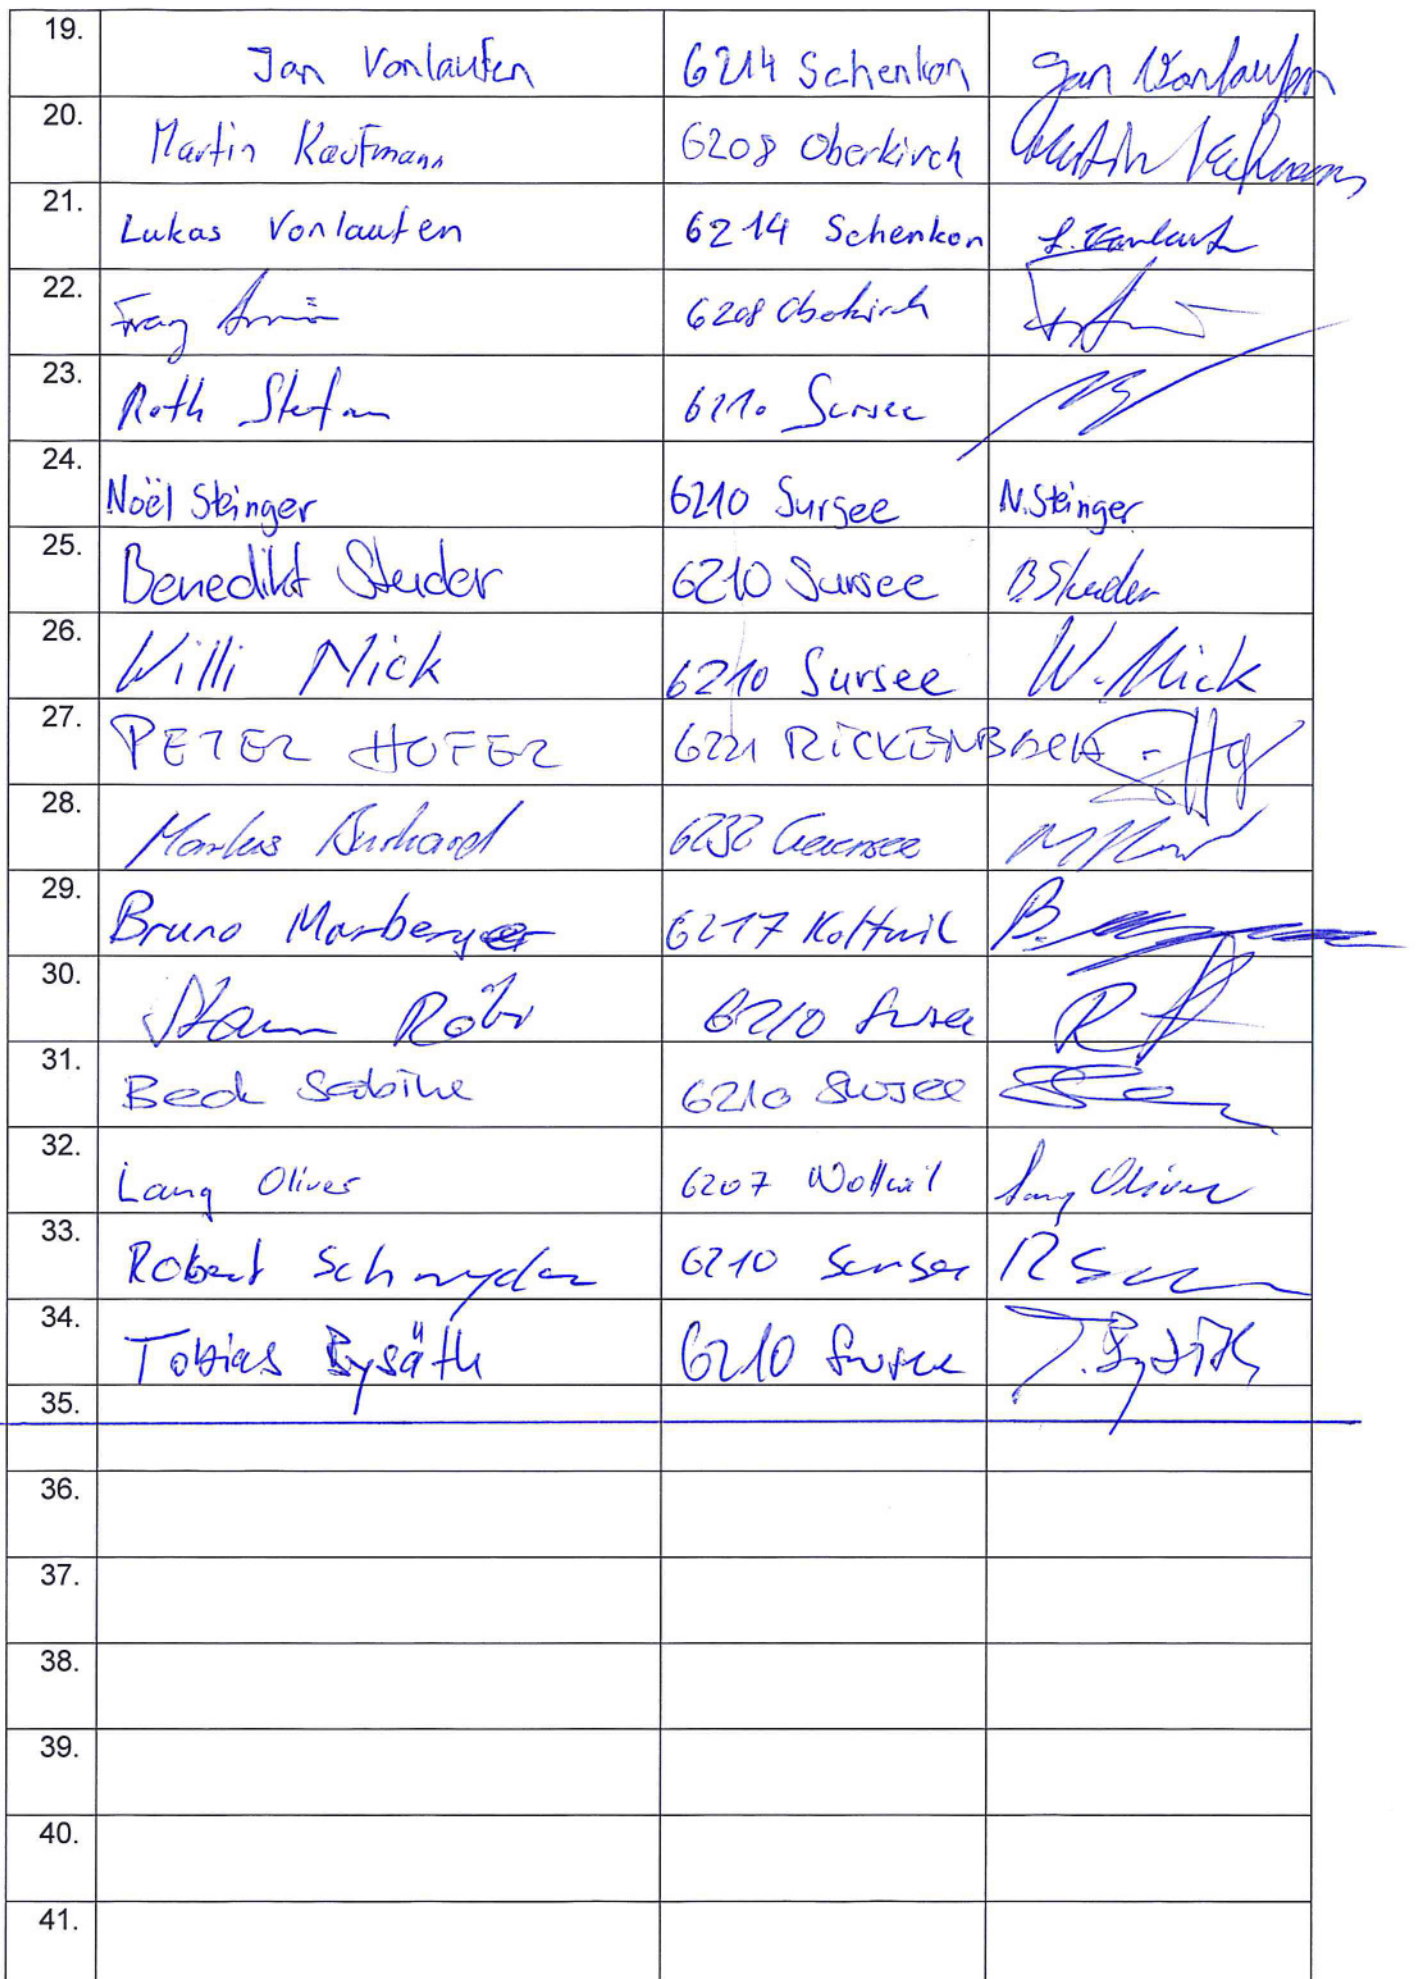 19. Jan Vonlaufen 6214 Schenkon Jan Vonlaufen
20. Martin Kaufmann 6208 Oberkirch Martin Kaufmann
21. Lukas Vonlaufen 6214 Schenkon L. Vonlauf
22. 6208 Oberkirch
23. Roth Stefan 6210 Sursee
24. Noël Steinger 6210 Sursee N. Steinger
25. Benedikt Studer 6210 Sursee B Studer
26. Willi Nick 6210 Sursee W. Nick
27. PETER HOFER 6221 RICKENBACH
28. Markus Burkard 6232 Geuensee
29. Bruno Marberger 6217 Kottwil B.
30. 6210 Sursee
31. Beck Sabine 6210 Sursee
32. Lang Oliver 6207 Nottwil Lang Oliver
33. Robert Schnyder 6210 Sursee R
34. Tobias Bysäth 6210 Sursee T. Bysäth
35.
36.
37.
38.
39.
40.
41.